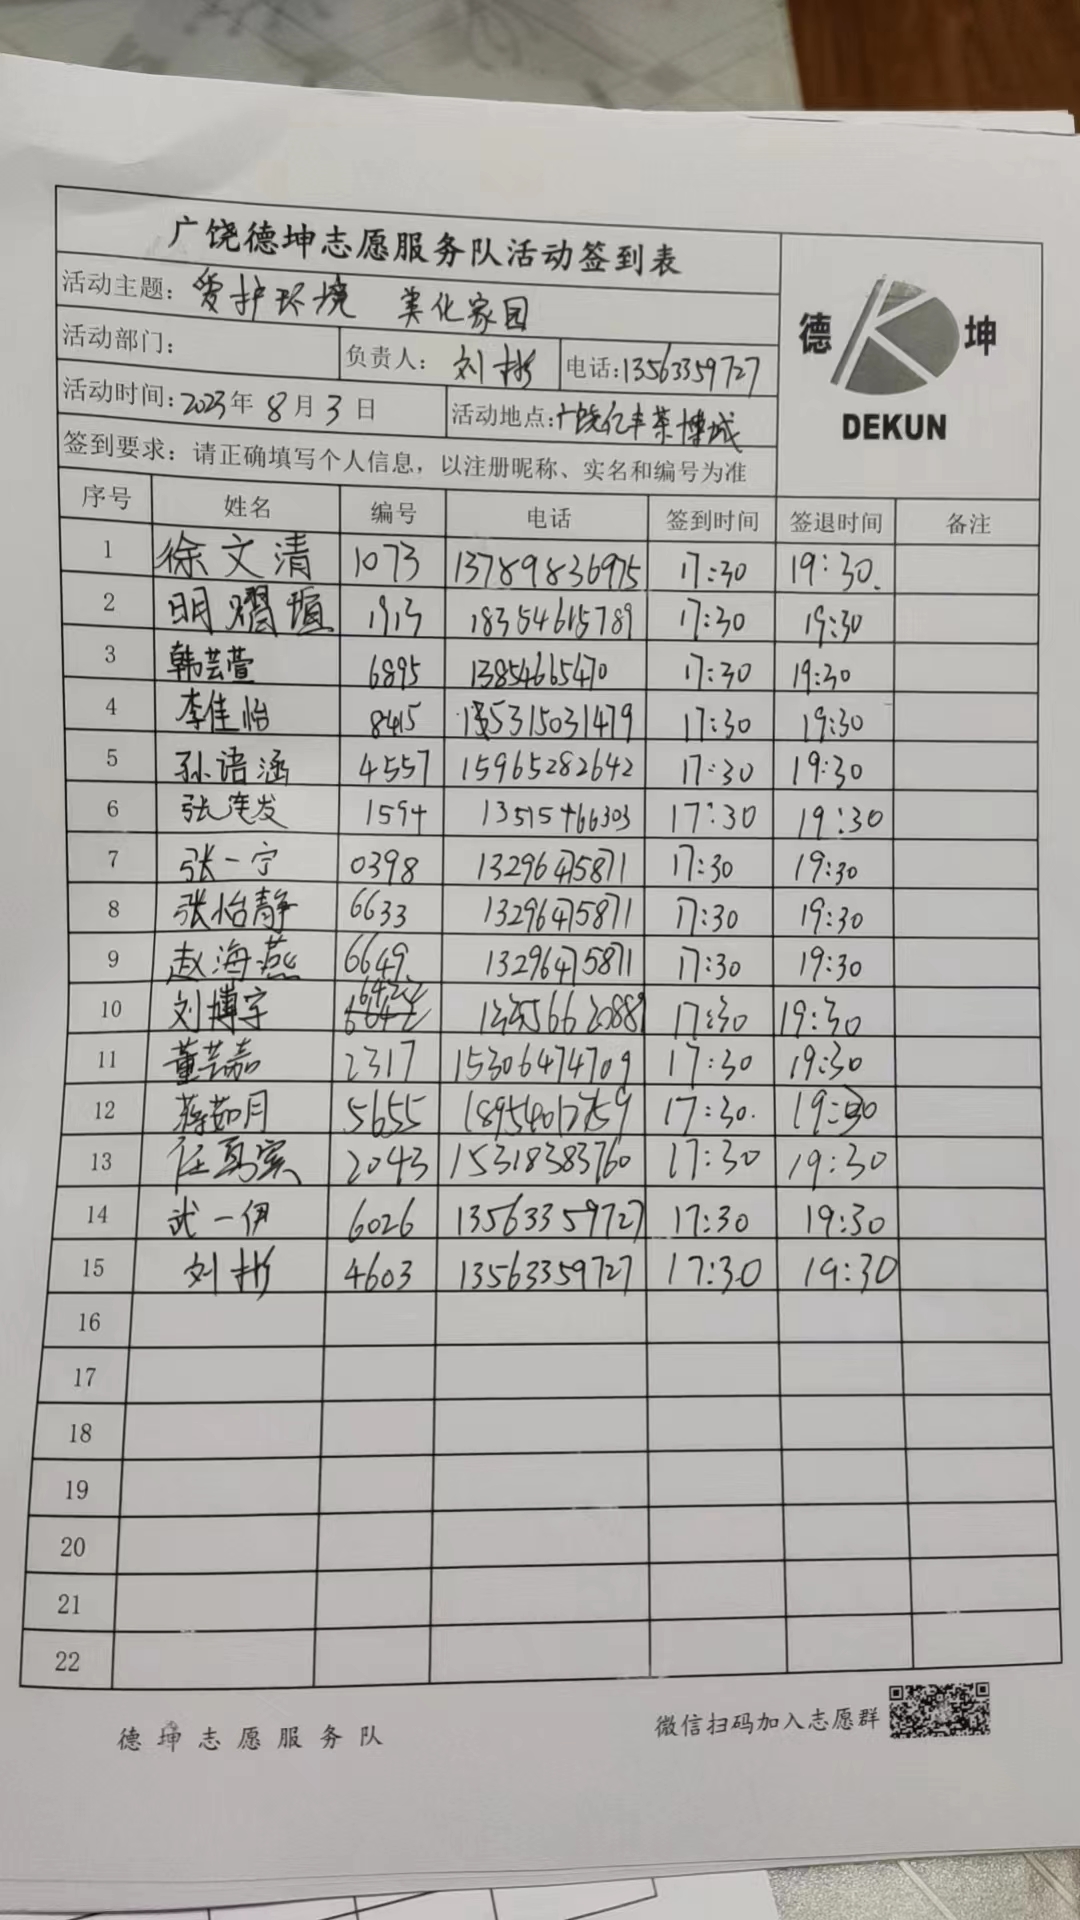 广饶德坤志愿服务队活动签到表
活动主题：爱护环境 美化家园
德 坤
DEKUN
活动部门： 负责人：刘彬 电话：13563359727
活动时间：2023年8月3日 活动地点：广饶亿丰茶博城
签到要求：请正确填写个人信息，以注册昵称、实名和编号为准
序号 姓名 编号 电话 签到时间 签退时间 备注
1 徐文清 1073 13789836975 17:30 19:30.
2 明熠 1913 18354615789 17:30 19:30
3 韩芸萱 6895 13854665470 17:30 19:30
4 李佳怡 8415 15315031479 17:30 19:30
5 孙语涵 4557 15965282642 17:30 19:30
6 张连发 1594 13515466303 17:30 19:30
7 张一宁 0398 13296475871 17:30 19:30
8 张怡静 6633 13296475871 17:30 19:30
9 赵海燕 6649 13296475871 17:30 19:30
10 刘博宇 17:30 19:30
11 董芸嘉 2317 15306474709 17:30 19:30
12 蒋茹月 5655 17:30. 19:30
13 任 2043 15318383760 17:30 19:30
14 武一伊 6026 13563359727 17:30 19:30
15 刘彬 4603 13563359727 17:30 19:30
16
17
18
19
20
21
22
德坤志愿服务队 微信扫码加入志愿群